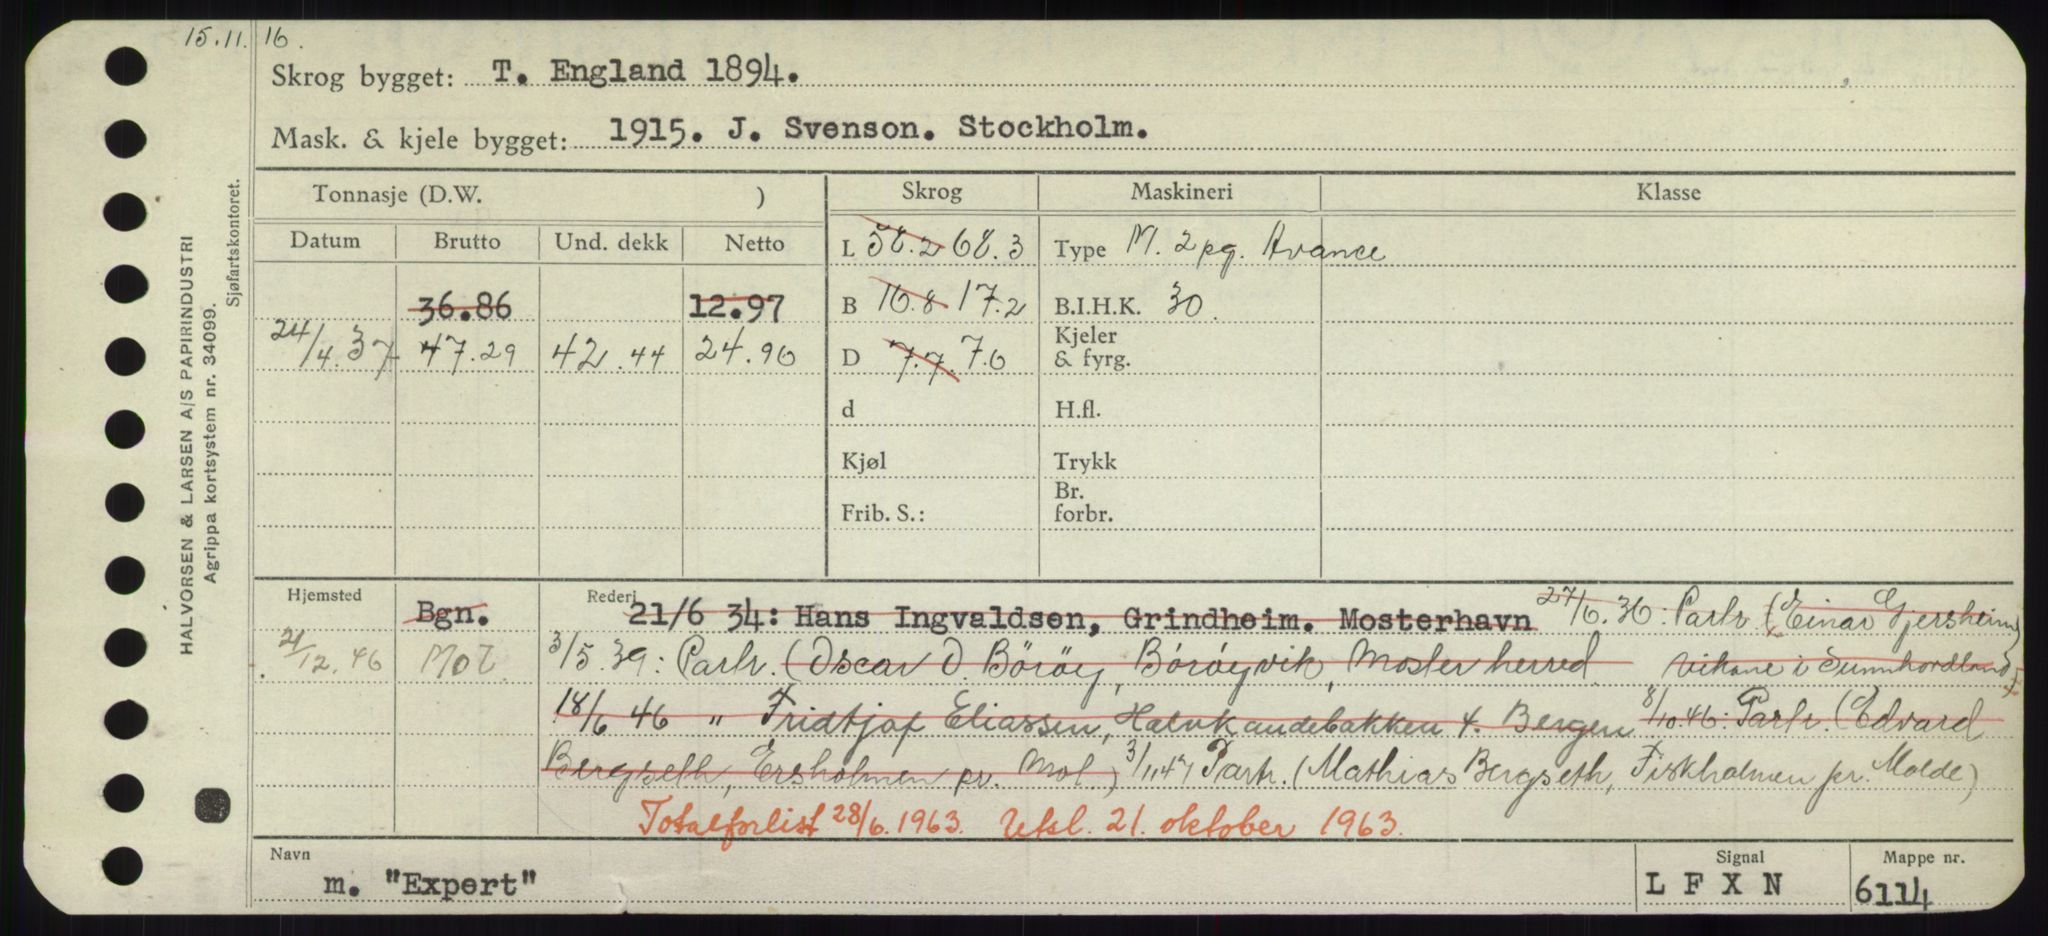 15.11.16.
Skrog bygget: T. England 1894.
Mask. & kjele bygget: 1915. J. Svenson. Stockholm.
Tonnasje (D.W. ) Skrog Maskineri Klasse
Datum Brutto Und. dekk Netto L 58.2 68.3 Type M. 2 pg. Avance
36.86 12.97 B 16.8 17.2 B.I.H.K. 30.
24/4.37 47.29 42.44 24.96 D 7.7. 7.6 Kjeler & fyrg.
d H.fl.
Kjøl Trykk
Frib. S.: Br. forbr.
Hjemsted Bgn. Rederi 21/6 34: Hans Ingvaldsen, Grindheim. Mosterhavn 27/6.36: Partr. (Einar Gjersheim,
21/12.46 Mol. 3/5.39: Partr. (Oscar O. Börøy, Börøyvik, Moster herred Vikane i Sunnhordland)
18/6 46 " Fridtjof Eliassen, Bergen 8/10.46: Partr. (Edvard
Bergseth, Ersholmen pr. Mol.) 3/1147 Partr. (Mathias Bergseth, Fiskholmen pr. Molde)
Totalforlist 28/6.1963. Utsl. 21. oktober 1963.
Navn m. "Expert" Signal L F X N Mappe nr. 6114
HALVORSEN & LARSEN A/S PAPIRINDUSTRI
Agrippa kortsystem nr. 34099.
Sjøfartskontoret.